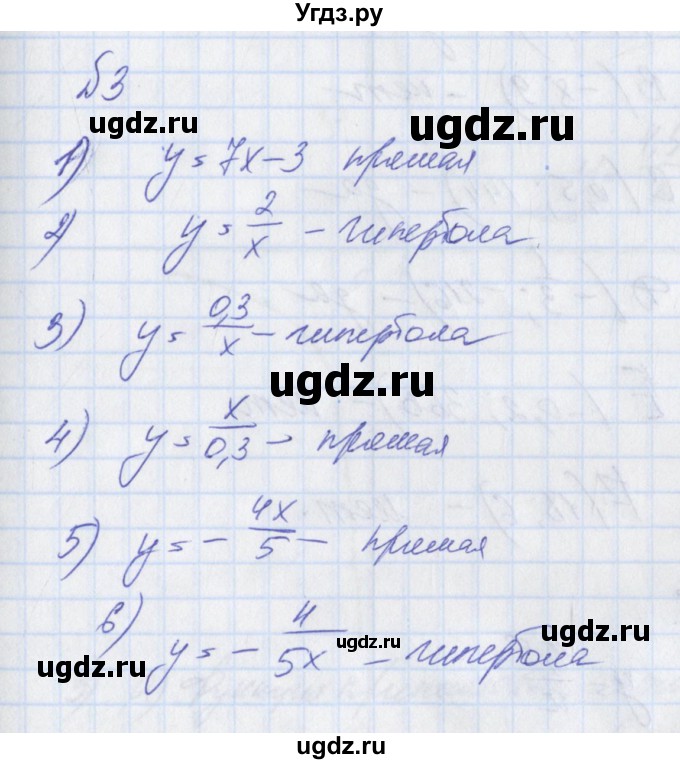 Угдз.ру
№3
ugdz.ru ugdz.ru
1) y = 7x - 3 прямая
2) y = 2/x - гипербола
3) y = 0,3/x - гипербола
ugdz.ru
4) y = x/0,3 - прямая
5) y = - 4x/5 - прямая
6) y = - 4/5x - гипербола
ugdz.ru ugdz.ru ugdz.ru
ugdz.ru